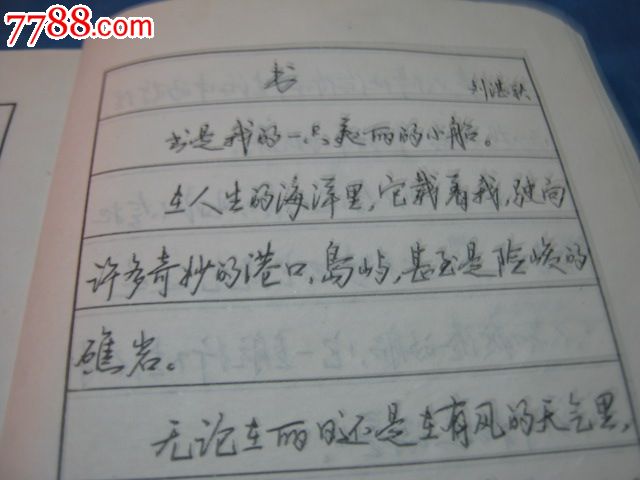 7788.com
书 刘湛秋
书是我的一只美丽的小船。
在人生的海洋里，它载着我，驶向
许多奇妙的港口、岛屿，甚至是险峻的
礁岩。
无论在丽日还是在有风的天气里，